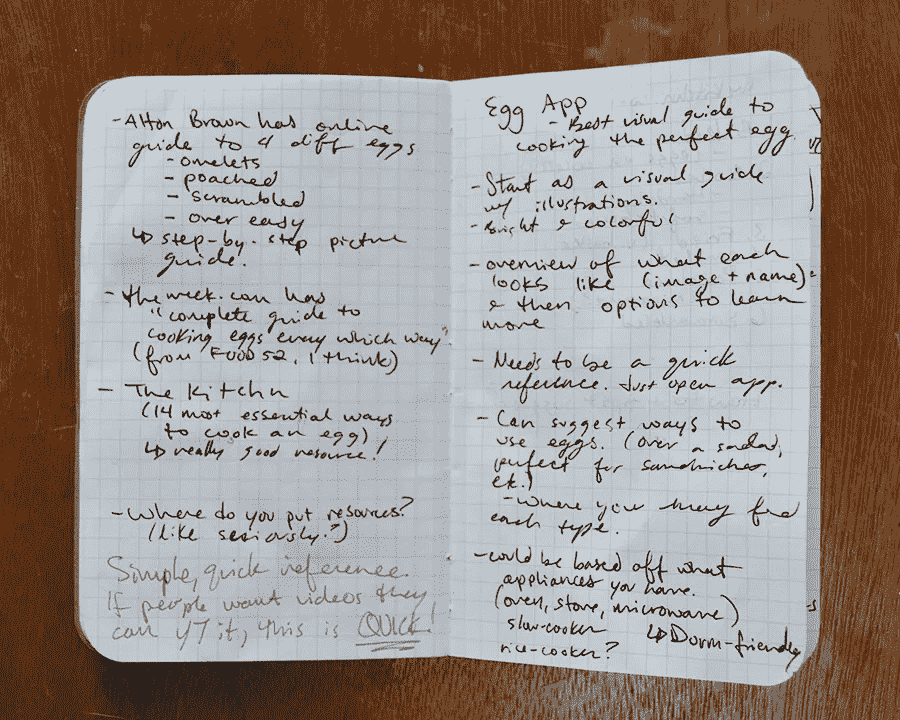 - Alton Brown has online
guide to 4 diff eggs
- omelets
- poached
- scrambled
- over easy
↳ step-by-step picture
guide.
- theweek.com has
"complete guide to
cooking eggs every which way"
(from FOOD52, I think)
- The Kitchn
(14 most essential ways
to cook an egg)
↳ really good resource!
- Where do you put resources?
(like seriously?)
Simple, quick reference.
If people want videos they
can YT it, this is QUICK!
Egg App
- Best visual guide to
cooking the perfect egg.
- Start as a visual guide
w/ illustrations.
- Bright & colorful
- overview of what each
looks like (image + name)
& then options to learn
more
- Needs to be a quick
reference. Just open app.
- Can suggest ways to
use eggs. (over a salad,
perfect for sandwiches,
etc.)
- Where you may find
each type.
- could be based off what
appliances you have.
(oven, stove, microwave)
slow-cooker ↳ Dorm-friendly
rice-cooker?